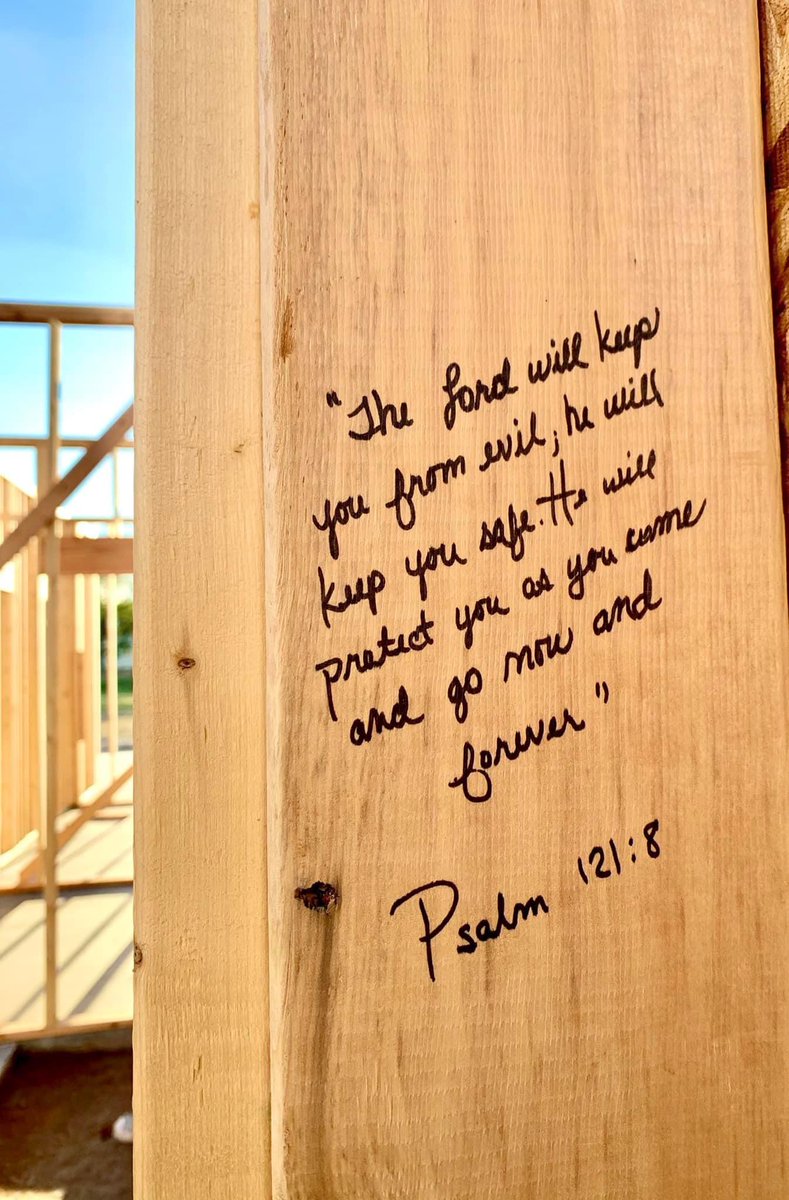 "The Lord will keep
you from evil; he will
keep you safe. He will
protect you as you come
and go now and
forever"
Psalm 121:8